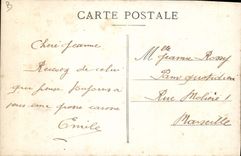 3
CARTE POSTALE
Chère Jeanne
Recevez de celui
que pense toujours a
vous une grosse caresse
Emile
Mlle Jeanne Rossy
Rue Molière 1
Marseille